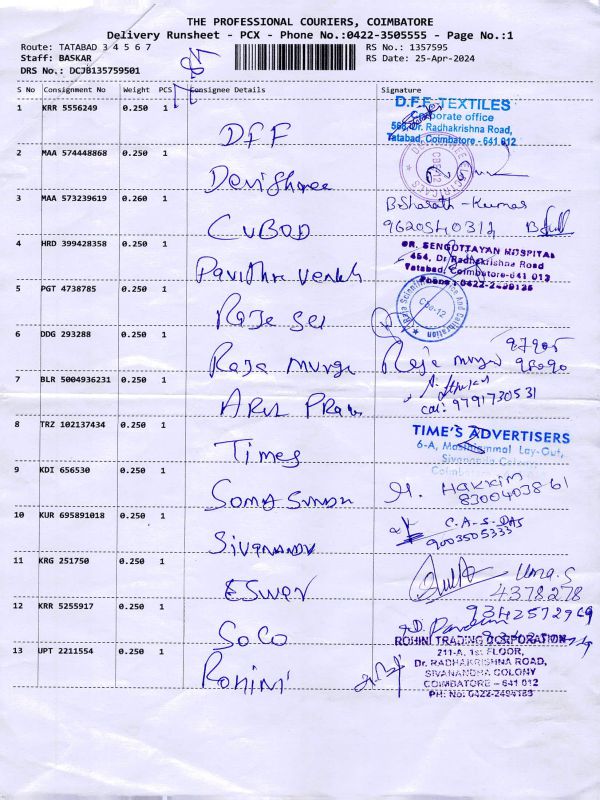 THE PROFESSIONAL COURIERS, COIMBATORE
Delivery Runsheet - PCX - Phone No.:0422-3505555 - Page No.:1
Route: TATABAD 3 4 5 6 7 RS No.: 1357595
Staff: BASKAR RS Date: 25-Apr-2024
DRS No.: DCJB135759501
S No Consignment No Weight PCS Consignee Details Signature
1 KRR 5556249 0.250 1 DFF
D.F.F. TEXTILES
Corporate office
566, Dr. Radhakrishna Road,
Tatabad, Coimbatore - 641 012
2 MAA 574448868 0.250 1 Devi Shree
3 MAA 573239619 0.260 1 CUBOD
B.Sharath - Kumar
9620540312
4 HRD 399428358 0.250 1 Pavithra Venkat
DR. SENGOTTAYAN HOSPITAL
454, Dr. Radhakrishna Road
Tatabad, Coimbatore-641 012
Phone : 0422-2499135
5 PGT 4738785 0.250 1 Raje Sei
Cbe-12
6 DDG 293288 0.250 1 Raja Muruga Raja
7 BLR 5004936231 0.250 1 ARUL PRAKA
cal: 9791730531
8 TRZ 102137434 0.250 1 Times
TIME'S ADVERTISERS
6-A, Masthiammal Lay-Out,
Sivananda Colony
Coimbatore
9 KDI 656530 0.250 1 Soma Sundar
H. HAKKIM
8300403861
10 KUR 695891018 0.250 1 Sivananda
C.A.S-DAS
9003505333
11 KRG 251750 0.250 1 ESWER
Uma.S
4378278
12 KRR 5255917 0.250 1 SOCO
9342572969
13 UPT 2211554 0.250 1 Rohini
ROHINI TRADING CORPORATION
211-A, 1st FLOOR,
Dr. RADHAKRISHNA ROAD,
SIVANANDHA COLONY
COIMBATORE - 641 012
PH: No. 0422-2494183